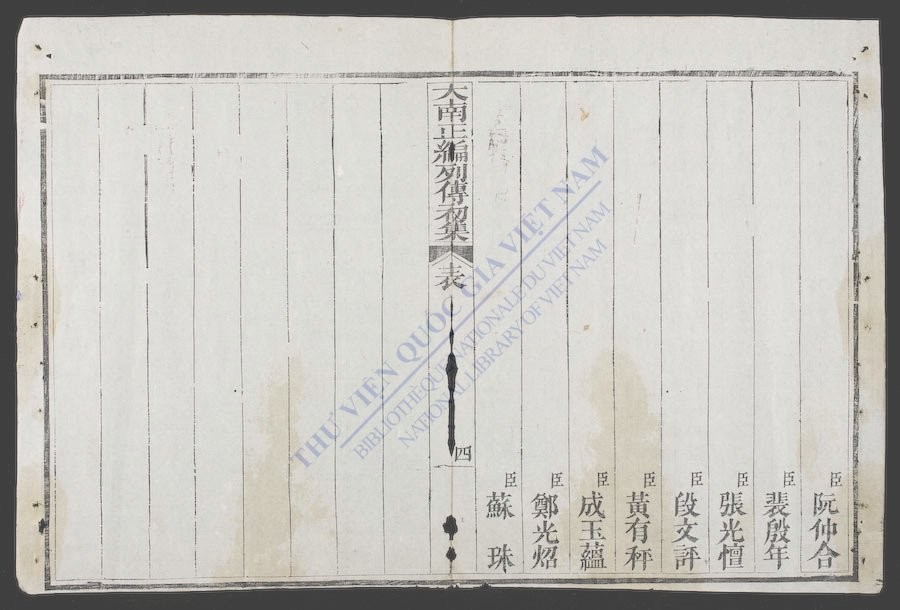 臣阮仲合
臣裴殷年
臣張光憻
臣段文評
臣黃有秤
臣成玉蘊
臣鄭光炤
臣蘇珠
大南正編列傳初集
表
四
THƯ VIỆN QUỐC GIA VIỆT NAM
BIBLIOTHÈQUE NATIONALE DU VIETNAM
NATIONAL LIBRARY OF VIETNAM